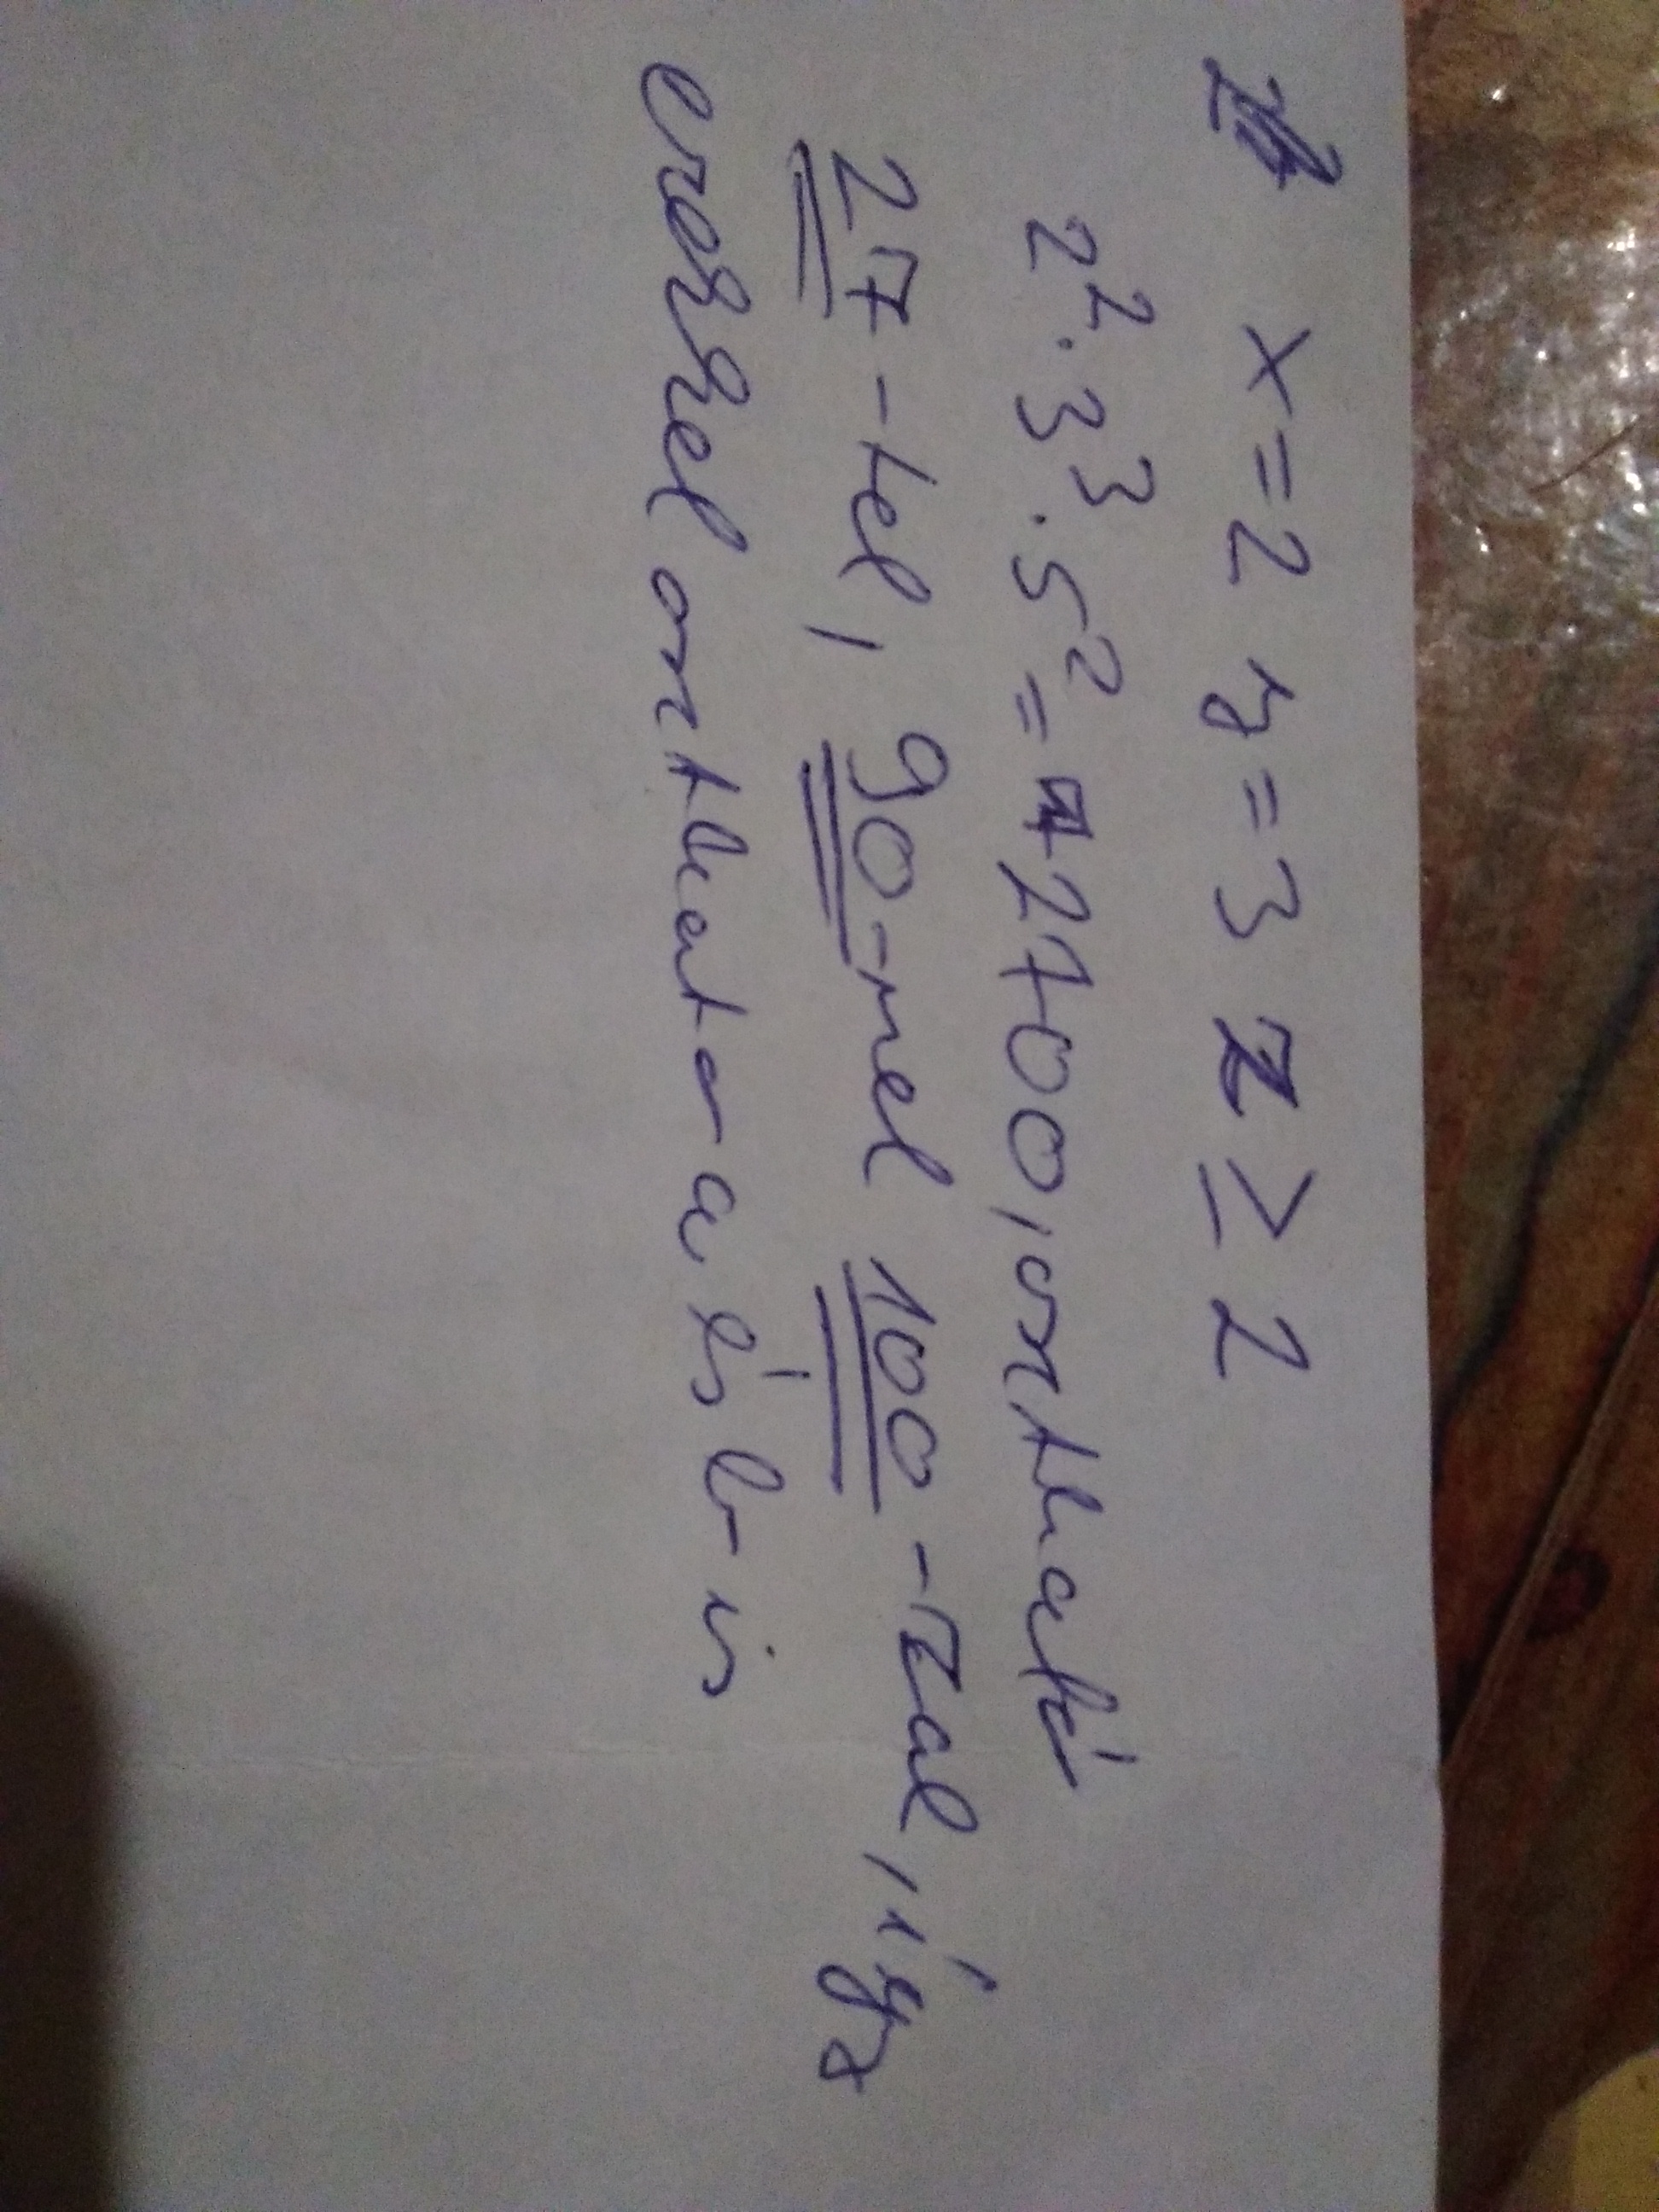 x=2 y=3 z≥2
2²·3³·5²=2700, osztható
27-tel, 90-nel 100-zal, így
ezekkel osztható a és b is